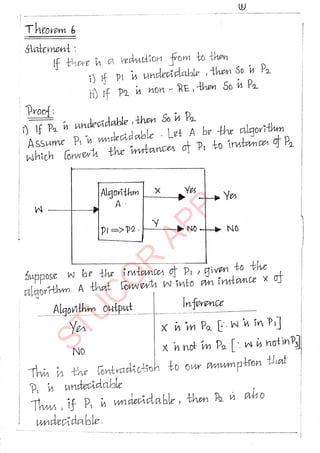 Theorem 6
Statement :
If there is a reduction from to then
i) If P1 is undecidable , then So is P2
ii) If P2 is non - RE , then So is P2
Proof :
i) If P2 is undecidable , then So is P2
Assume P1 is undecidable . Let A be the algorithm
which Converts the instances of P1 to instances of P2
Algorithm A . X Yes Yes
W
P1 => P2 . Y NO NO
Suppose W be the instances of P1 , given to the
algorithm A that Converts W into an instance x of
Algorithm output Inference
Yes X is in P2 [∵ W is in P1]
NO X is not in P2 [∵ W is not in P2]
This is the Contradiction to our assumption that
P1 is undecidable
Thus , if P1 is undecidable , then P2 is also
undecidable .
STUCOR APP